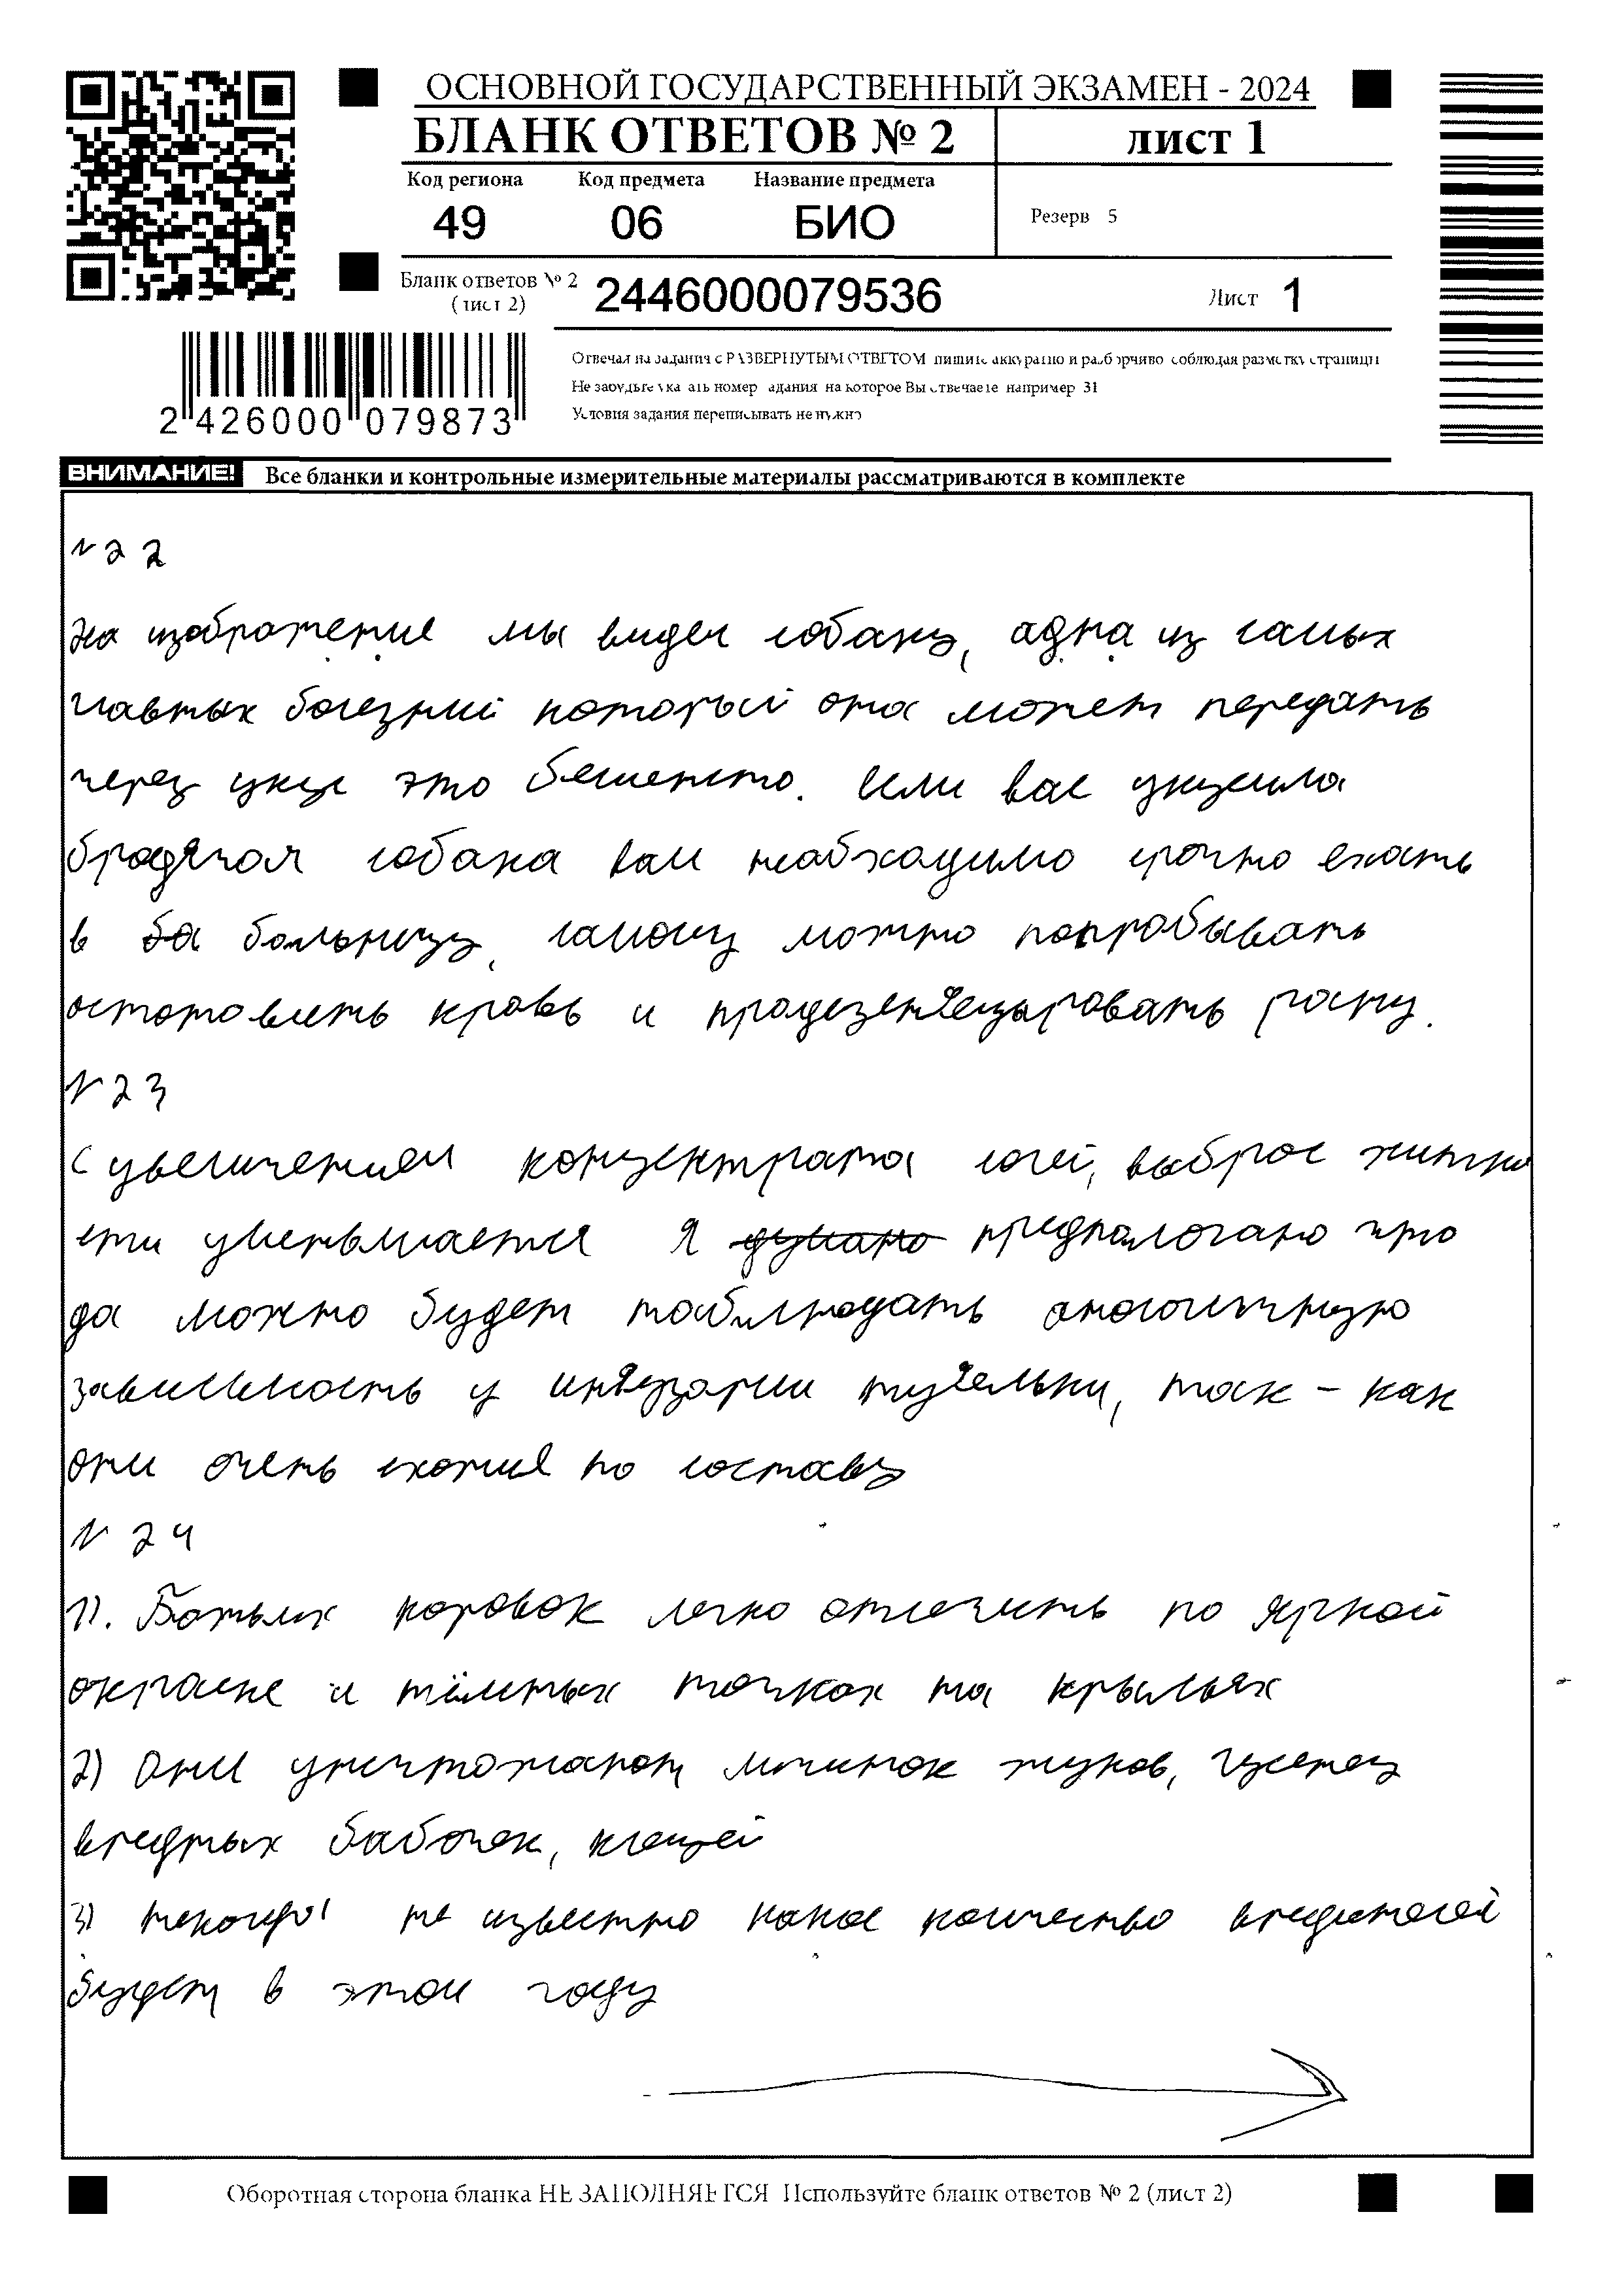 ОСНОВНОЙ ГОСУДАРСТВЕННЫЙ ЭКЗАМЕН - 2024
БЛАНК ОТВЕТОВ № 2
лист 1
Код региона Код предмета Название предмета
49 06 БИО
Резерв 5
Бланк ответов № 2
(лист 2)
2446000079536
Лист 1
2 426000 079873
Отвечая на задания с РАЗВЕРНУТЫМ ОТВЕТОМ пишите аккуратно и разборчиво соблюдая разметку страницы
Не забудьте указать номер задания на которое Вы отвечаете например 31
Условия задания переписывать не нужно
ВНИМАНИЕ! Все бланки и контрольные измерительные материалы рассматриваются в комплекте
N22
На изображение мы видем собаку, адна из самых
главных болезний которой она может передать
через укус это бешенсто. Если вас укусила
бродячая собака вам необходимо срочно ехать
в ба больницу, самому можно попробывать
остоновить кровь и продезенфецыровать рану.
N23
С увеличением концентрата солей, выброс жидко
сти уменьшается Я думаю предпологаю что
да можно будет наблюдать аналогичную
зависимость у инфузории туфельки, так-как
они очень схожие по составу
N 24
1). Божьих коровок легко отличить по яркой
окраске и тёмных точках на крыльях
2) Они уничтожают личинок жуков, гусениц
вредных бабочек, клещей
3) никогда не известно какое количество вредителей
будет в этом году
Оборотная сторона бланка НЕ ЗАПОЛНЯЕТСЯ Используйте бланк ответов № 2 (лист 2)